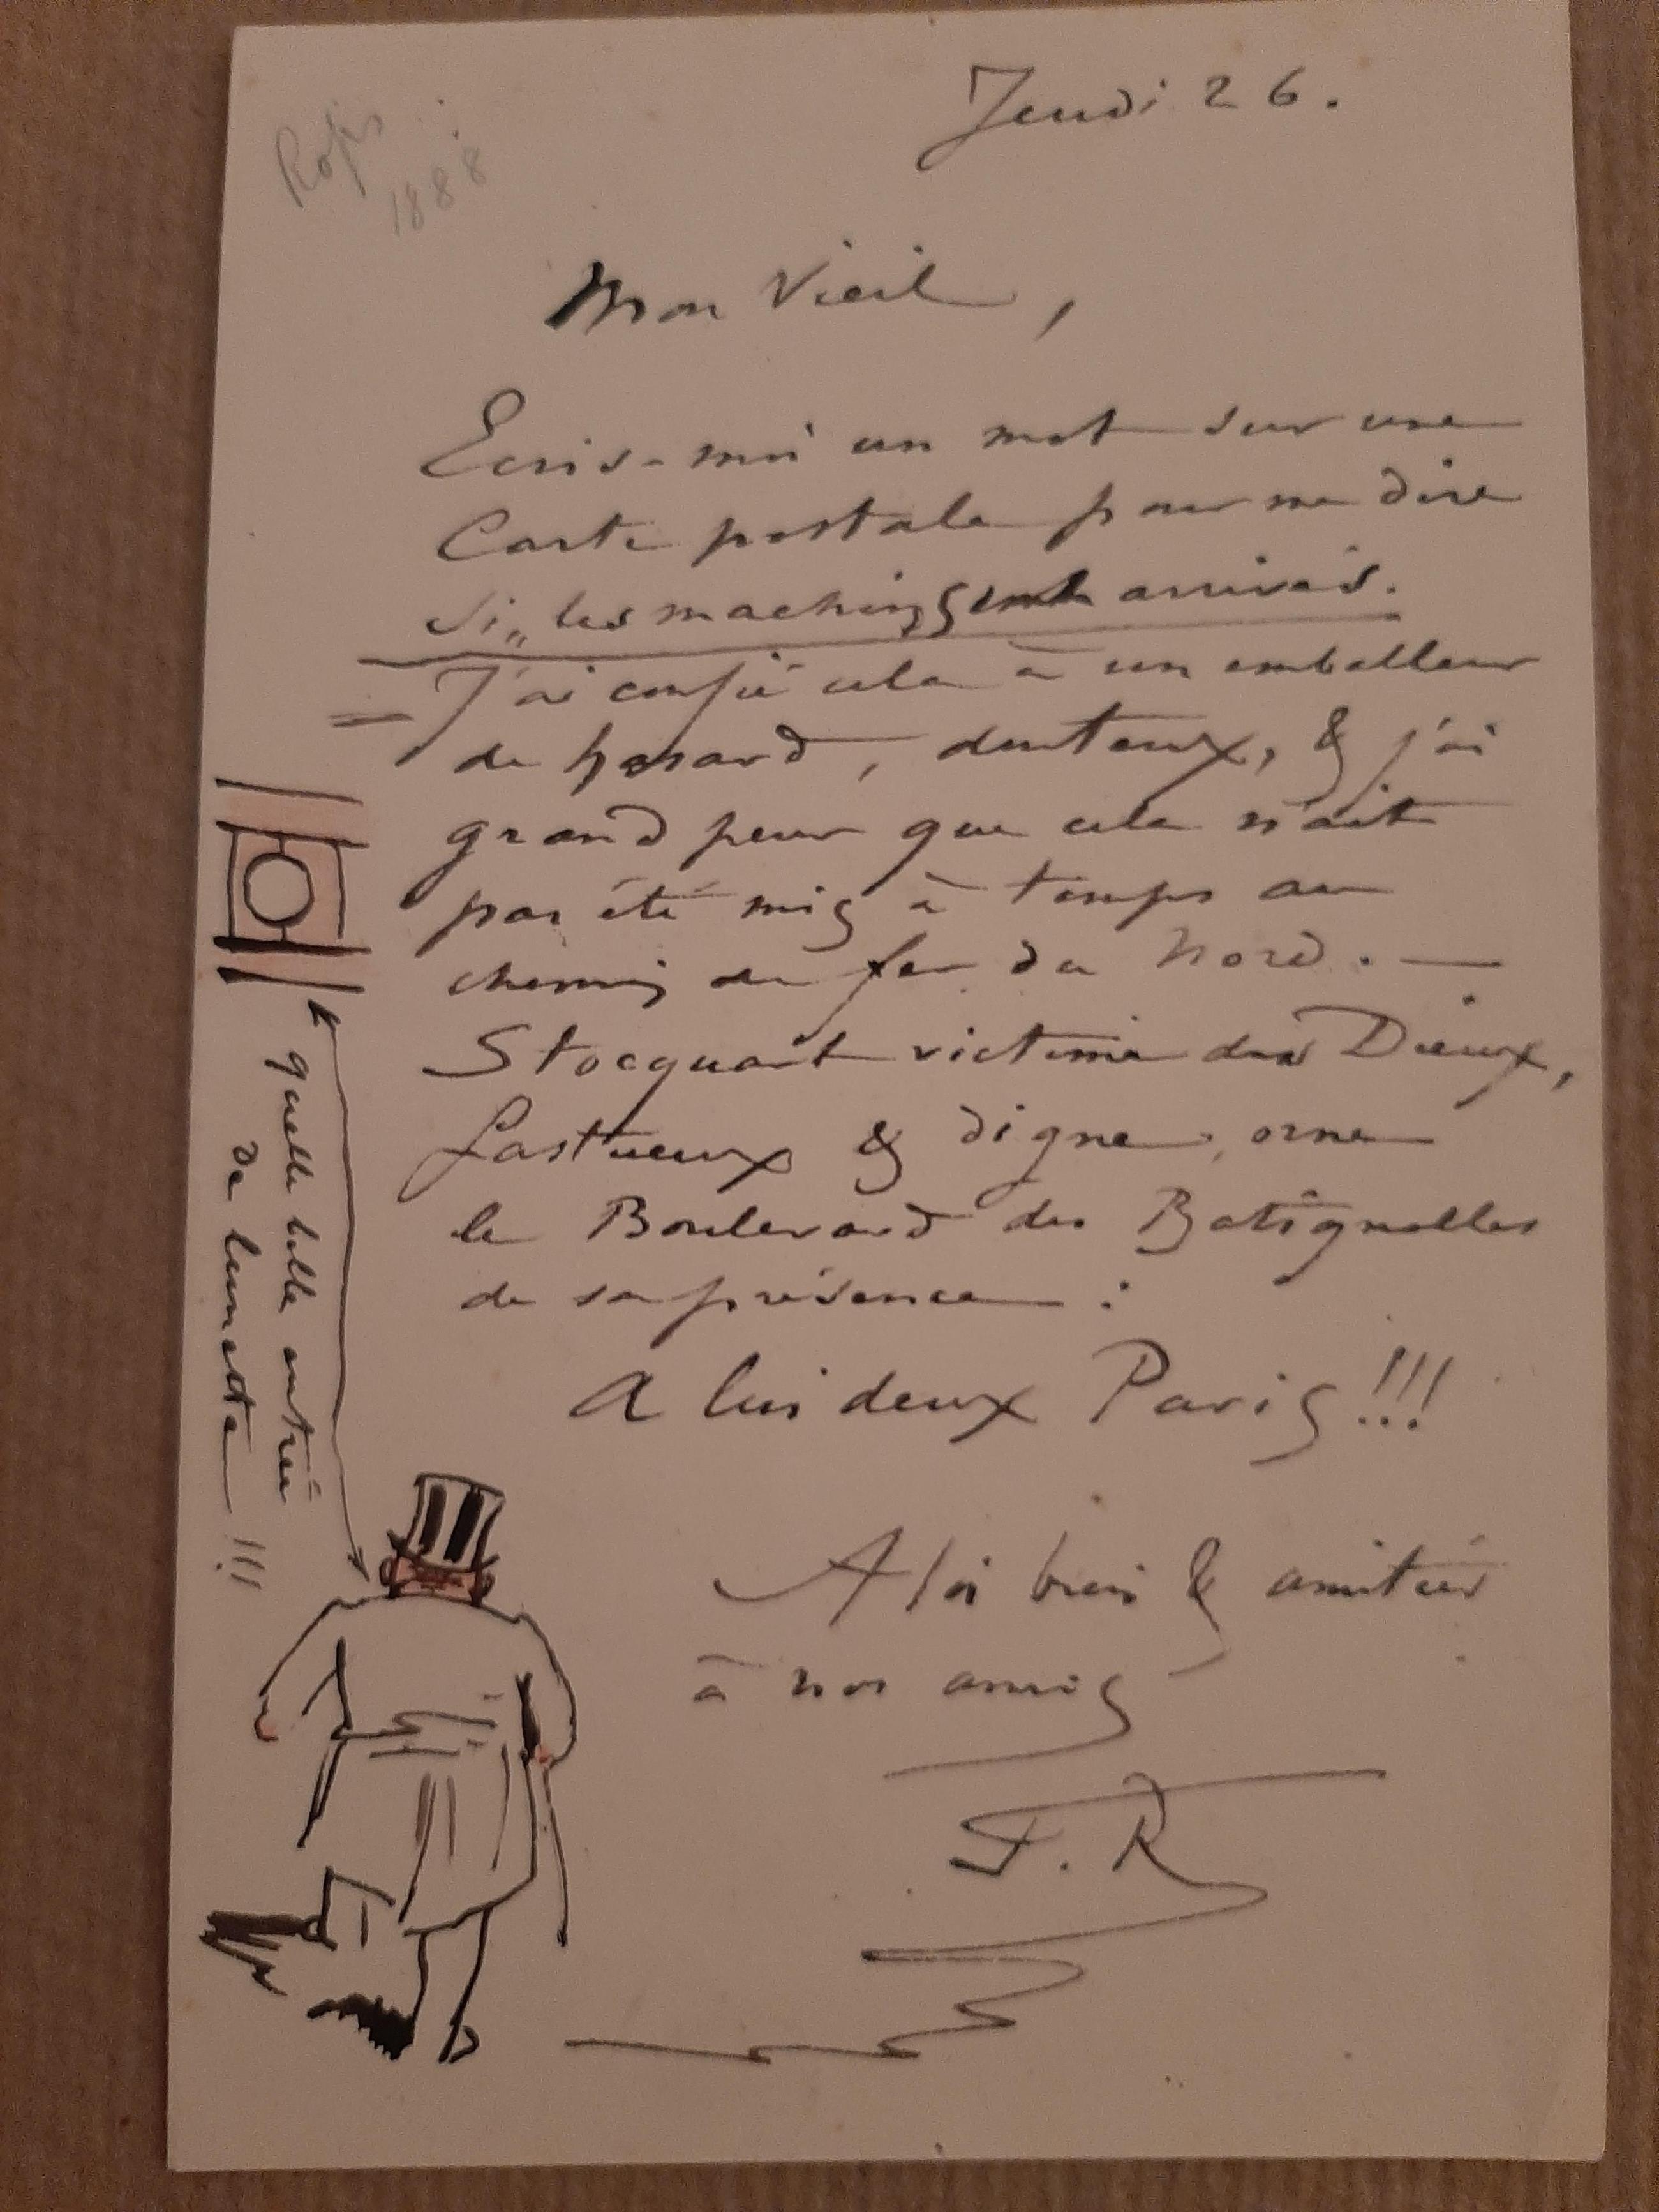 Rops
1888
Jeudi 26.
Mon Vieil,
Ecris-moi un mot sur une
Carte postale pour me dire
si „ les machins sont arrivés.
= J'ai confié cela à un emballeur
de hasard, douteux, & j'ai
grand peur que cela n'ait
pas été mis à temps au
chemin de fer du Nord. —
Stocquart victime des Dieux,
fastueux & digne, orne
le Boulevard des Batignolles
de sa présence :
A lui deux Paris !!!
A toi bien & amitiés
à nos amis
F. R
quelle belle entrée
de lunette !!!